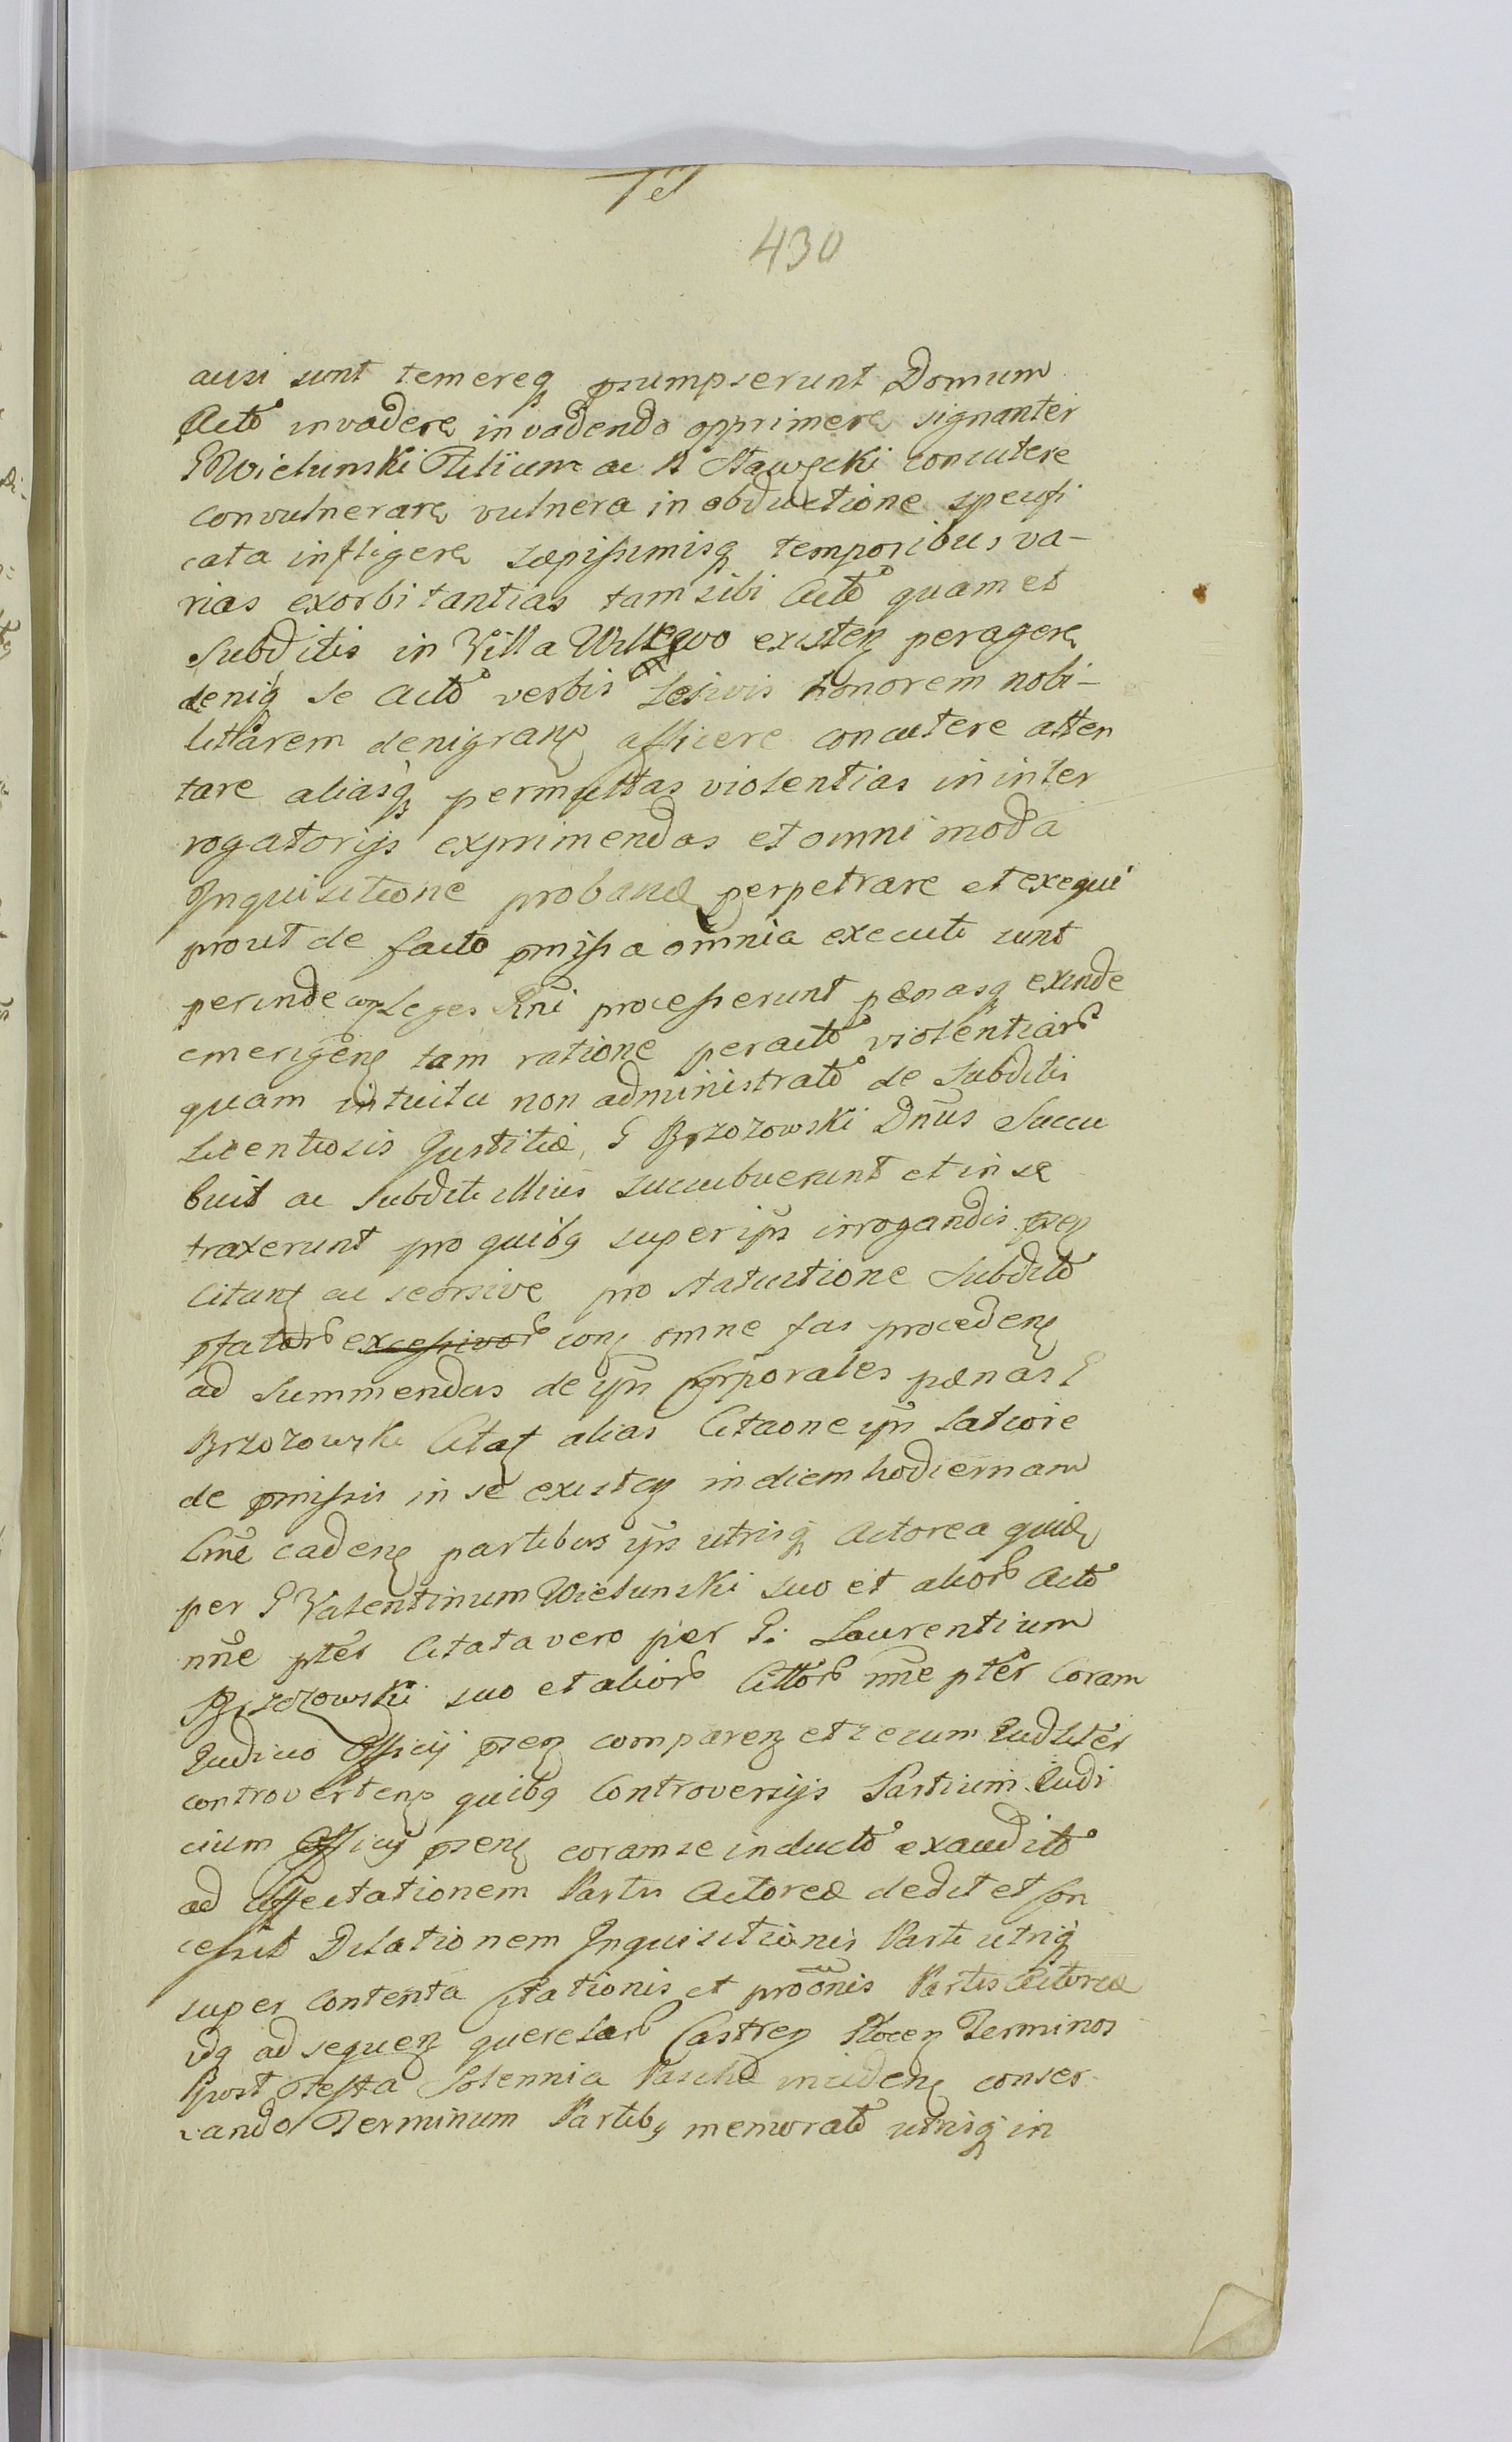 430
ausi sunt temereq prumpserunt Domum
Acto invadere invadendo opprimere signanter
G Wielunski Filium ac N Stawęcki concutere
convulnerare vulnera in obductione specifi
cata infligere sæpissimisq temporibus va-
rias exorbitantias tam sibi Acto quam et
Subditis in Villa existen peragere
deniq se Acto verbis lesivis honorem nobi-
litarem denigran afficere concutere atten
tare aliasq permultas violentias in inter
rogatorijs exprimendas et omni moda
Inquisitione proband perpetrare et exequi
prout de facto pmissa omnia executi sunt
perinde con Leges Rni processerunt pænasq exinde
emergen tam ratione peracto violentiar
quam intuitu non administrato de Subditis
licentiosis Justitiæ, G Brzozowski Dnus Succu
buit ac Subditi illius succubuerunt et in se
traxerunt pro quibq super ips irrogandis pn
citant ac seorsive pro statuitione Subdito
pfator excessivor con omne fas proceden
ad summendas de ips corporales pænas G
Brzozowski Citat alias Citaone ips latiore
de pmissis in se existen in diem hodiernam
Cme caden partibus ips utrisq Actorea quid
per G Valentinum Wielunski suo et alior Acto
nne pter Citata vero per G: Laurentium
Brzozowski suo et alior Citor nne pter Coram
Judicio Officij psen comparen et secum Judliter
controverten quibq Controversijs Partium Judi
cium Officij psen coram se inducto exaudito
ad Affectationem Partis Actoreæ dedit et con
cessit Dilationem Inquisitionis Parti utriq
super contenta Citationis et proonis Partis Actoreæ
idq ad sequen querelar Castren Plocen Terminos
post Festa Solennia Paschæ inciden conser
vando Terminum Partibq memorato utrisq in